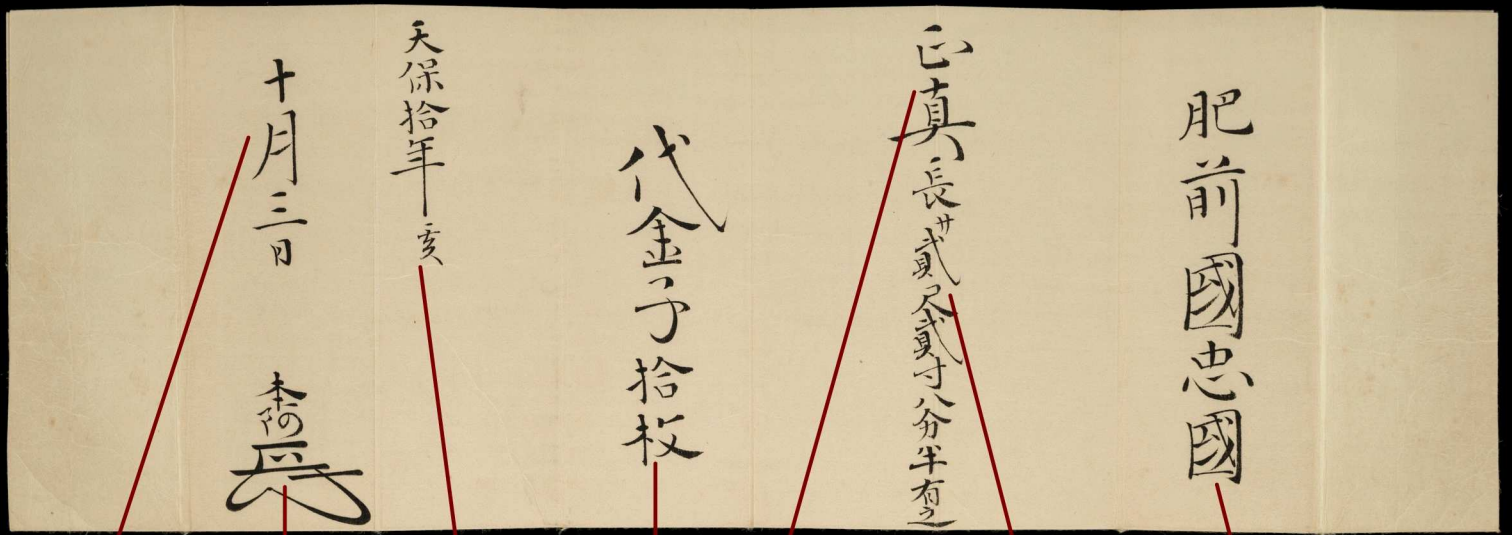 肥前國忠國
正真 長サ貳尺貳寸八分半有之
代金子拾枚
天保拾年 亥
十月三日
本阿